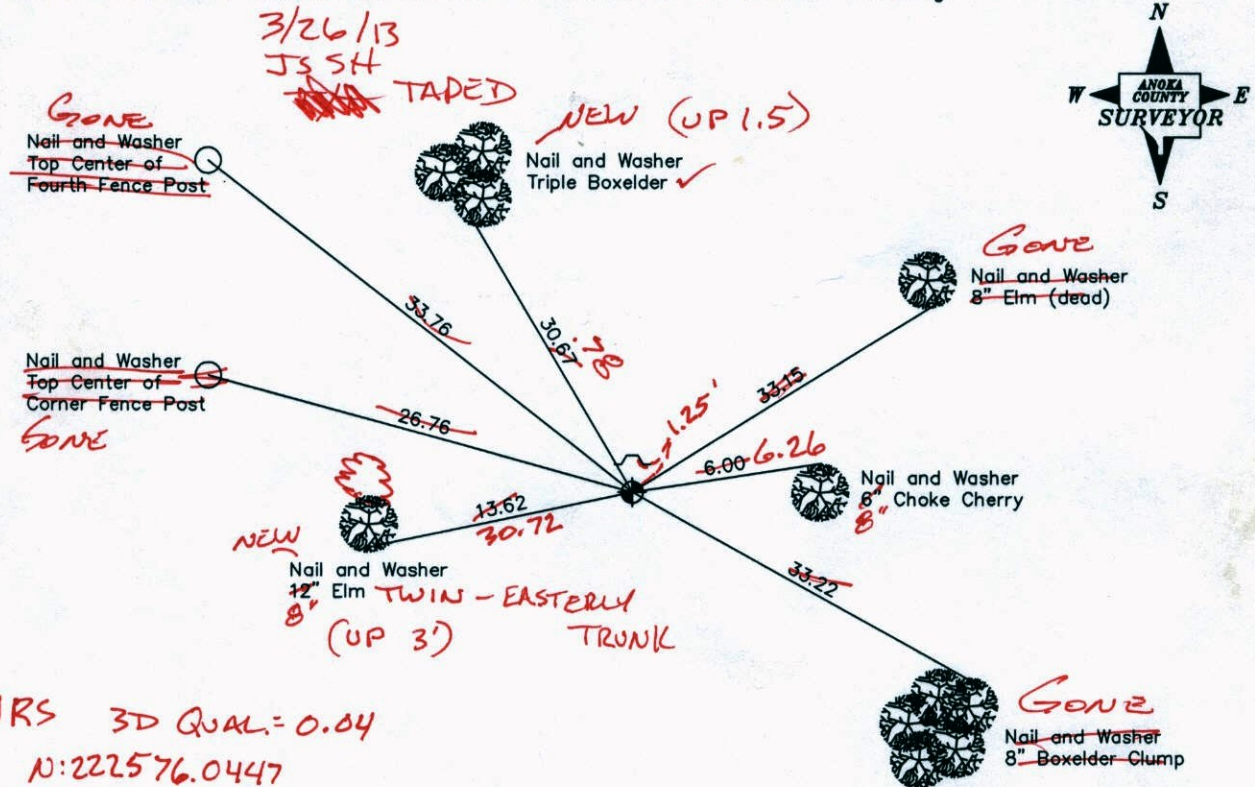 3/26/13
JS SH
TAPED
N
W ANOKA COUNTY E
SURVEYOR
S
GONE
Nail and Washer
Top Center of
Fourth Fence Post
NEW (UP 1.5)
Nail and Washer
Triple Boxelder ✓
GONE
Nail and Washer
8" Elm (dead)
33.76
30.67 .78
33.15
Nail and Washer
Top Center of
Corner Fence Post
GONE
26.76
1.25'
6.00 6.26
Nail and Washer
6" Choke Cherry
8"
13.62
30.72
NEW
Nail and Washer
12" Elm TWIN - EASTERLY
8" (UP 3') TRUNK
33.22
GONE
Nail and Washer
8" Boxelder Clump
3D QUAL.= 0.04
N:222576.0447